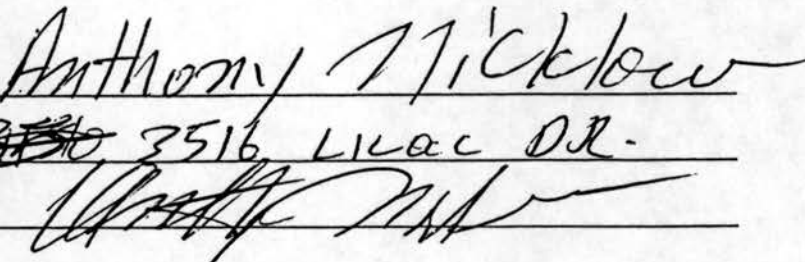 Anthony Nicklow
3516 Lilac DR.